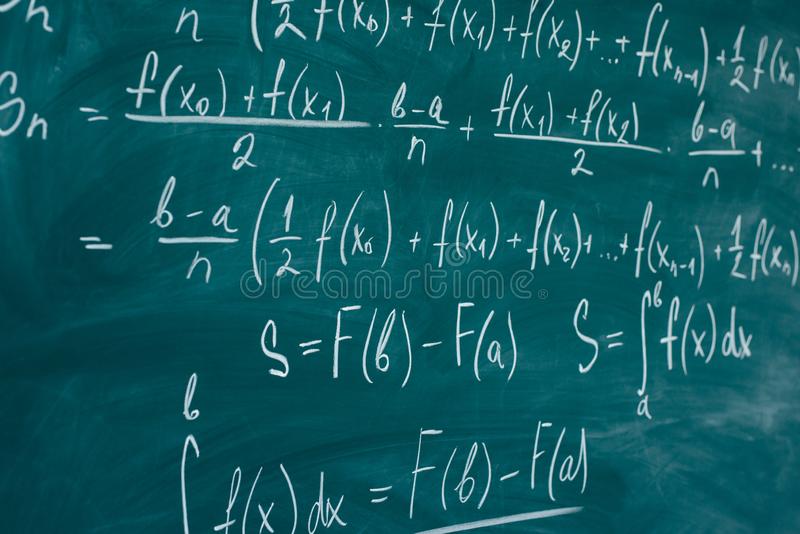 n (1/2 f(x₀) + f(x₁) + f(x₂) + ... + f(xₙ₋₁) + 1/2 f(xₙ
Sₙ = (f(x₀) + f(x₁))/2 · (b-a)/n + (f(x₁) + f(x₂))/2 · (b-a)/n + ...
= (b-a)/n (1/2 f(x₀) + f(x₁) + f(x₂) + ... + f(xₙ₋₁) + 1/2 f(xₙ)
dreamstime
S = F(b) - F(a) S = ∫ₐᵇ f(x)dx
∫ᵇ f(x)dx = F(b) - F(a)